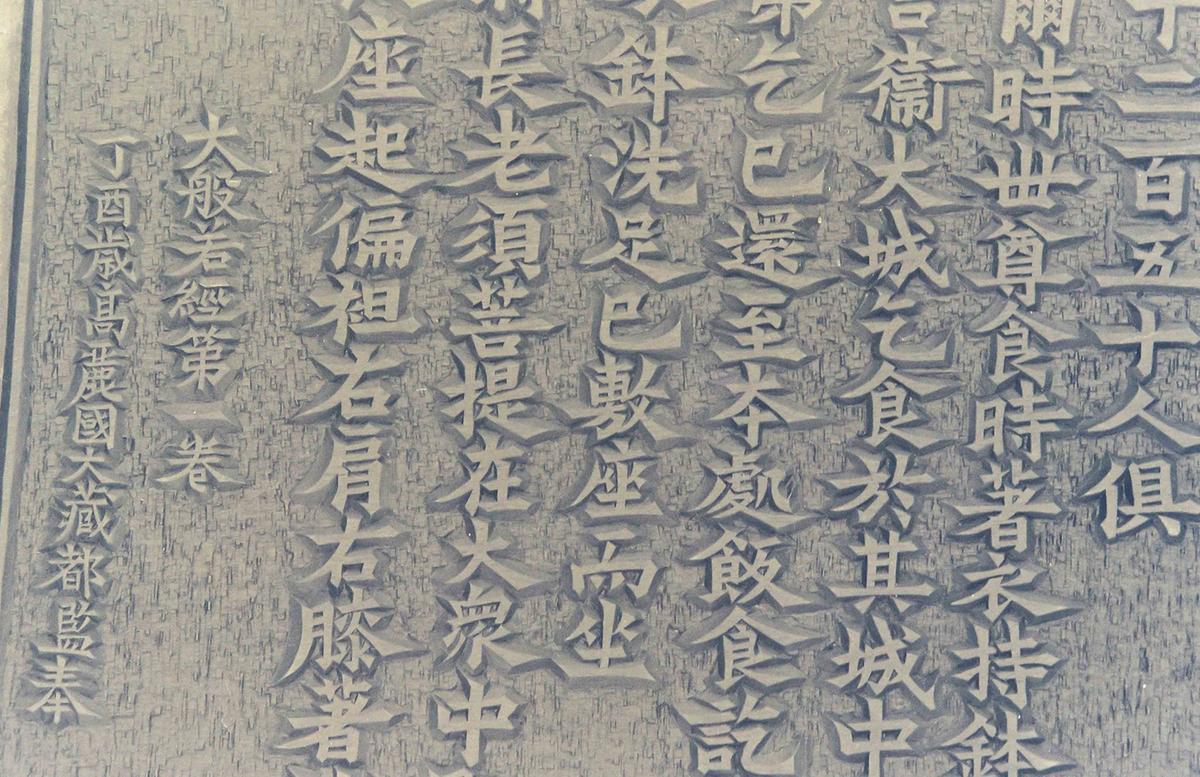 千二百五十人俱
爾時世尊食時著衣持鉢
舍衛大城乞食於其城中
第乞已還至本處飯食訖
鉢洗足已敷座而坐
長老須菩提在大衆中
座起偏袒右肩右膝著
大般若經第一卷
丁酉歲高麗國大藏都監奉